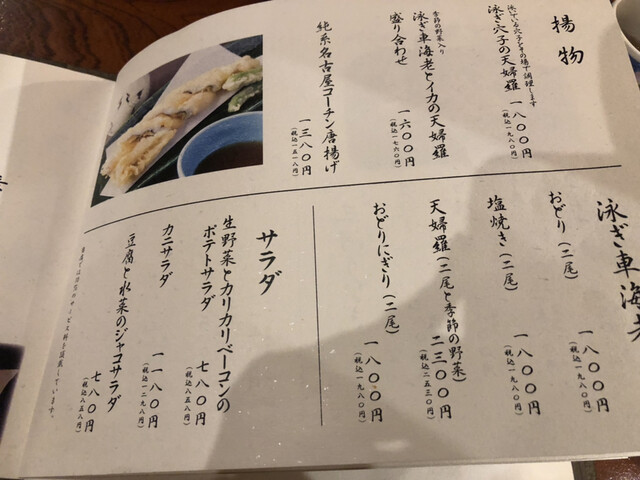 揚物
泳いでいる穴子をその場で調理します
泳ぎ穴子の天婦羅
一八〇〇円
(税込一九八〇円)
季節の野菜入り
泳ぎ車海老とイカの天婦羅
盛り合わせ
一六〇〇円
(税込一七六〇円)
純系名古屋コーチン唐揚げ
一三八〇円
(税込一五一八円)
泳ぎ車海老
おどり(二尾)
一八〇〇円
(税込一九八〇円)
塩焼き(二尾)
一八〇〇円
(税込一九八〇円)
天婦羅(二尾と季節の野菜)
二三〇〇円
(税込二五三〇円)
おどりにぎり(二尾)
一八〇〇円
(税込一九八〇円)
サラダ
生野菜とカリカリベーコンの
ポテトサラダ
七八〇円
(税込八五八円)
カニサラダ
一一八〇円
(税込一二九八円)
豆腐と水菜のジャコサラダ
七八〇円
(税込八五八円)